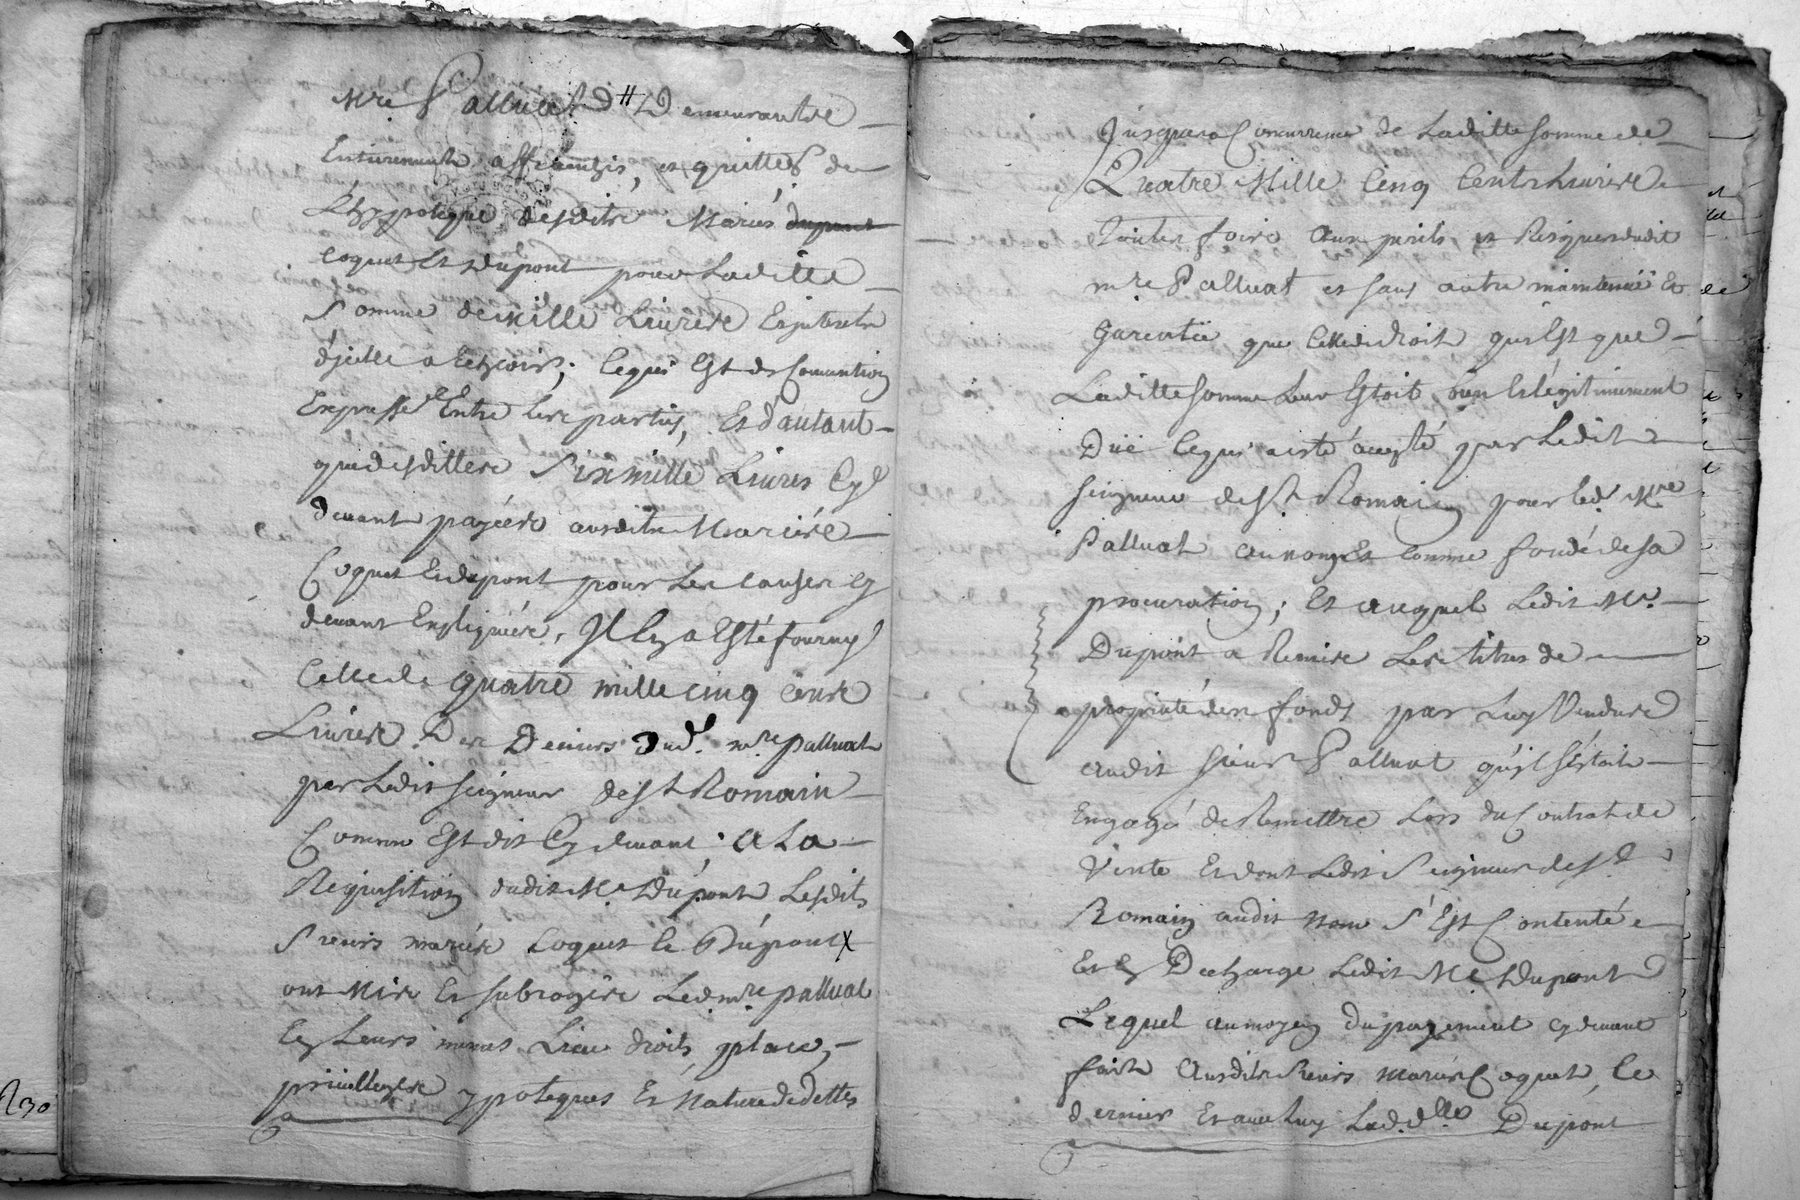 Mre Palluat d. // Demeurantre
Entierement affranchis, et quittes de
L'hyppoteque desdits Mariés dupont
Coquet Et Dupont pour Laditte
Somme de Mille Livres Einterets
d'jcelle a Echeoir; Cequi Est de Convention
Expresse Entre les parties, Et d'autant
que desdittes Six mille Livres Cy
devant payées ausdits Mariés
Coquet Et dupont pour Les causes Cy
devant Expliquées, Il En a Esté fourny
Celle de quatre mille cinq cens
Livres Des Deniers Dud. mre palluat
par Ledit seigneur de St Romain
Comme Est dit Cy devant; a La
Requisition dudit Me Dupont Lesdits
Sieurs mariés Coquet Et Dupont x
ont Mis Et subrogés Led. mre palluat
En Leurs mêmes Lieu droits, place,
privilleges ypoteques Et Nature de dettes
230
Jusques a Concurrence de Laditte somme de
Quatre Mille Cinq Cents Livres
Toutes fois aux perils et Risques dudit
mre Palluat et sans autre maintenüe Et
Garentie que Celle de droit qui Est que
Laditte somme Leur Estoit bien Et légitimement
Düe Cequi a esté accepté par Ledit
seigneur de St Romain pour led. Mre
Palluat au nom Et Comme fondé de sa
procuration; Et auquel Ledit Me
Dupont a Remis Les titres de
propriété des fonds par Luy Vendus
audit sieur Palluat qu'jl s'étoit
Engagé de Remettre Lors du Contrat de
Vente Et dont Ledit Seigneur de St
Romain audit nom S'Est Contenté
Et En Decharge Ledit Me Dupont
Lequel au moyen du payement cy devant
fait Ausdits sieurs mariés Coquet, Ce
dernier Et avec Luy Lad. dlle Dupont